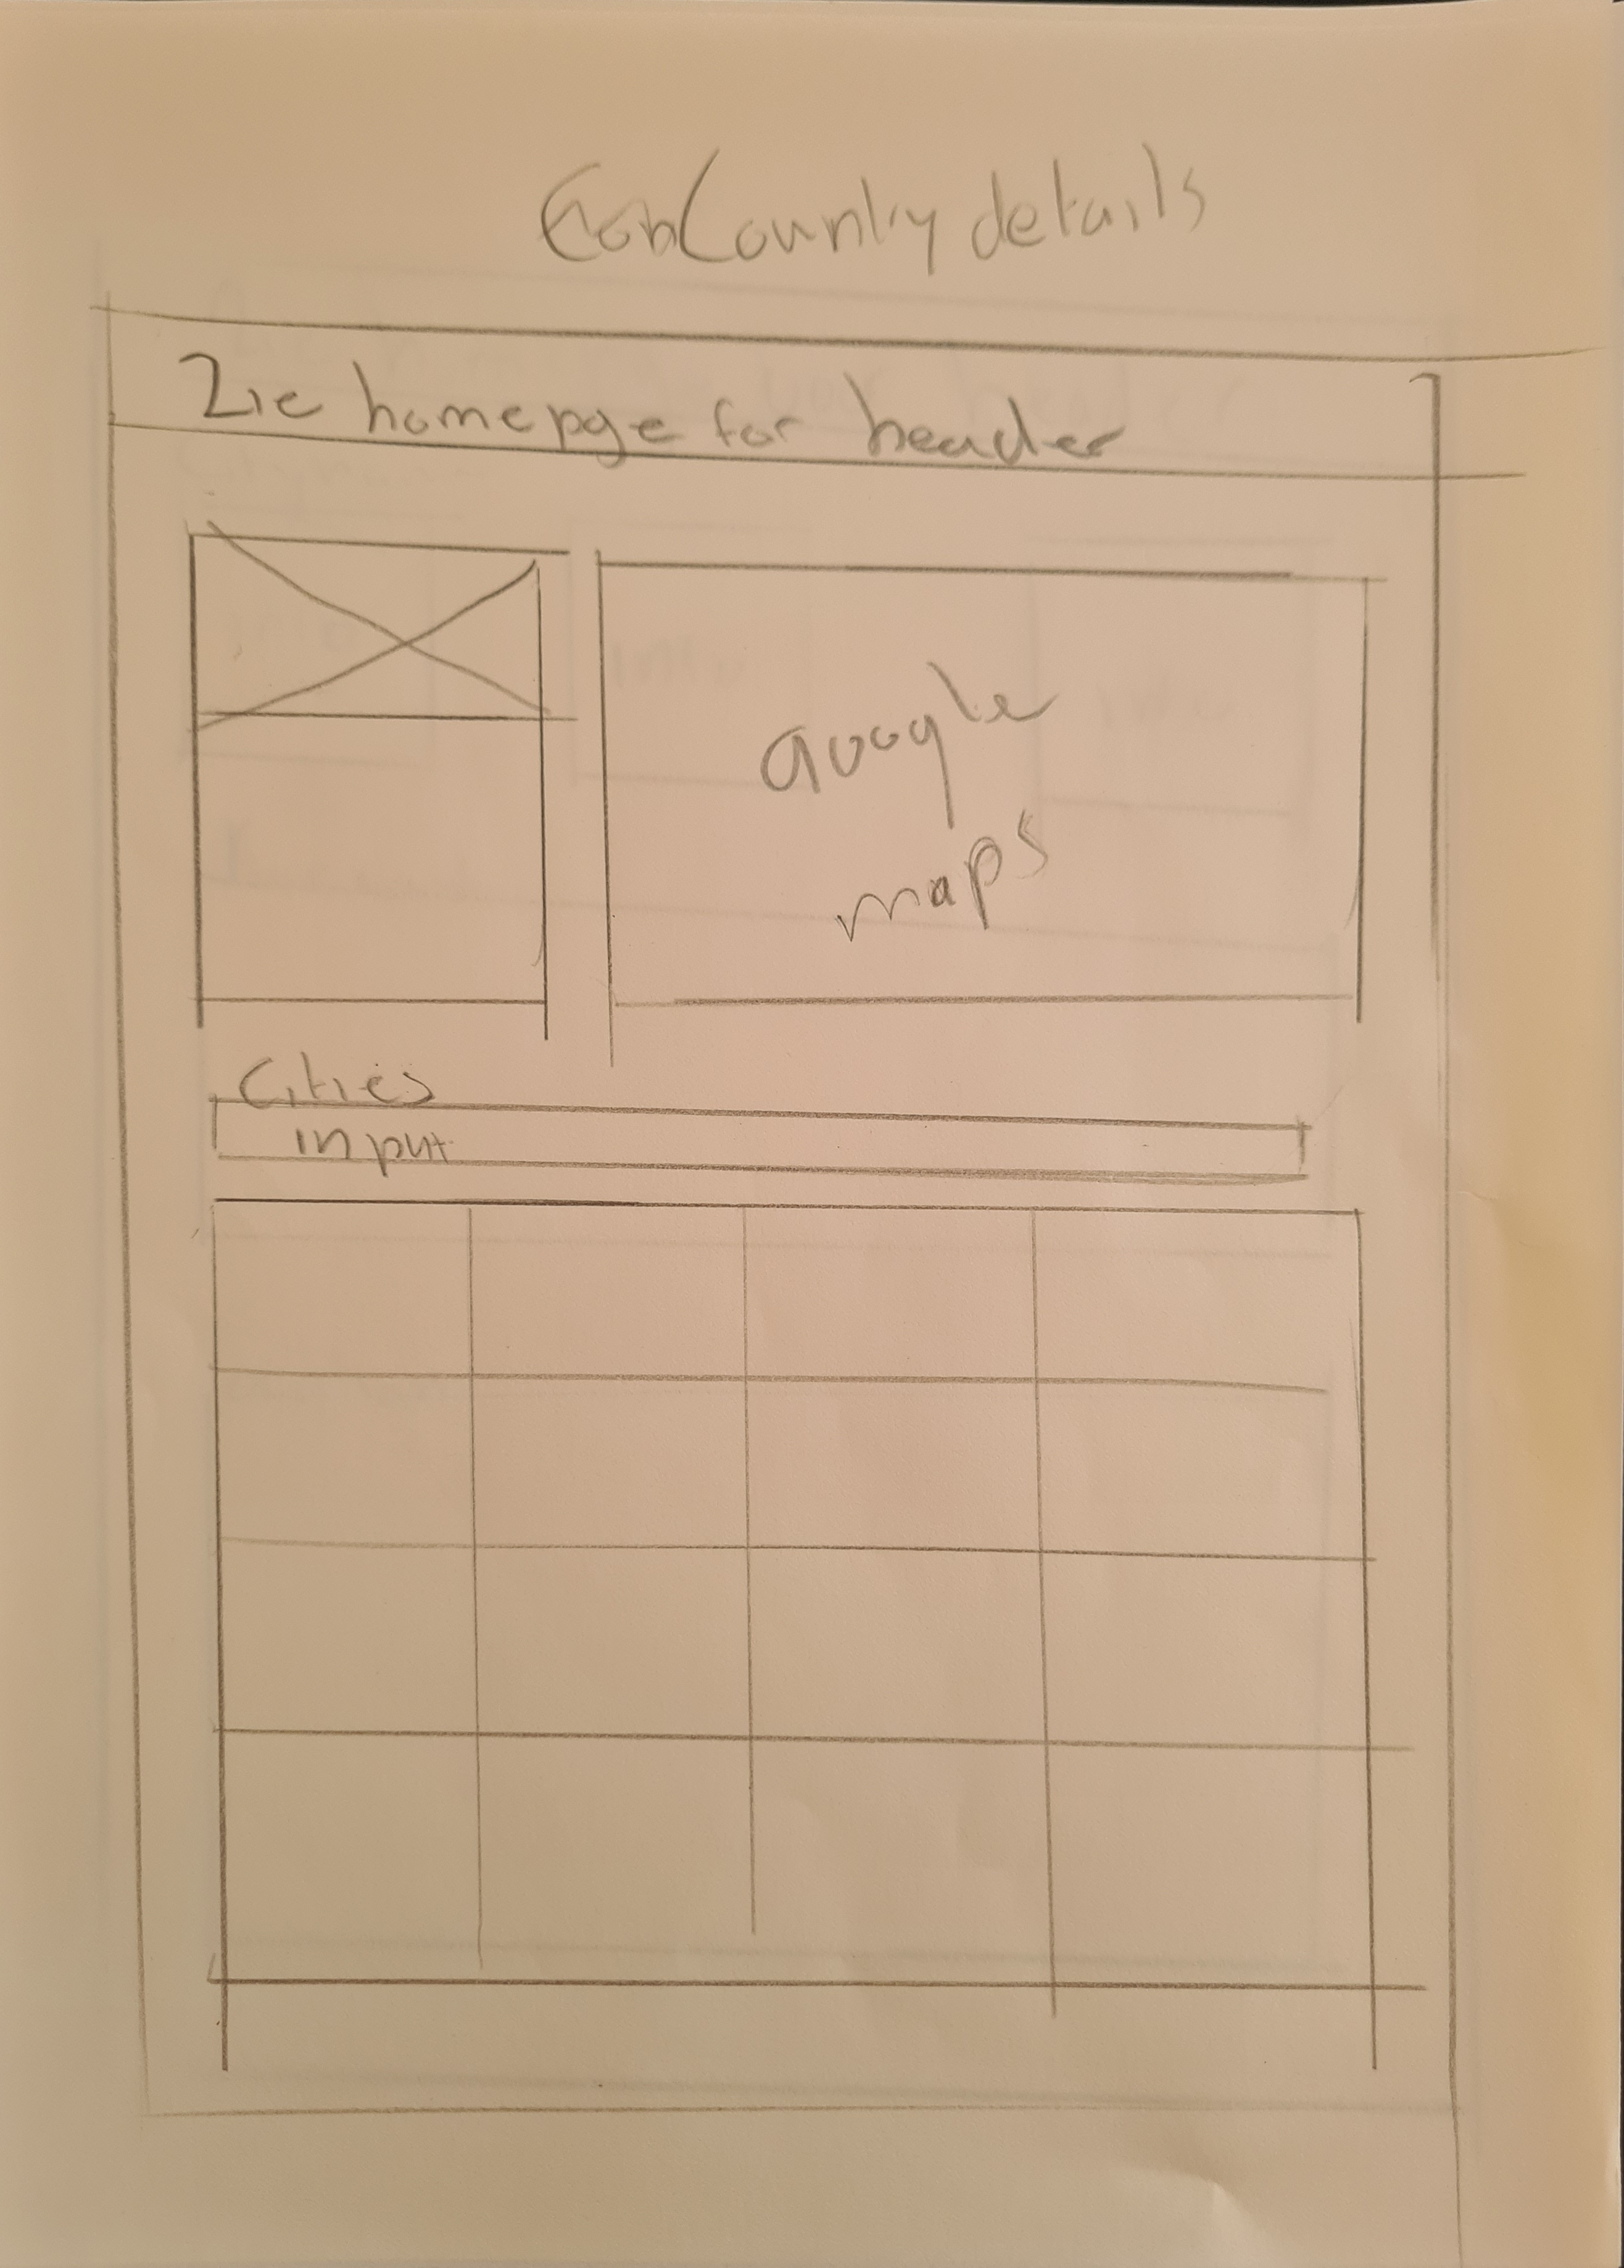 Country details
Zie homepge for header
Google
maps
Cities
input